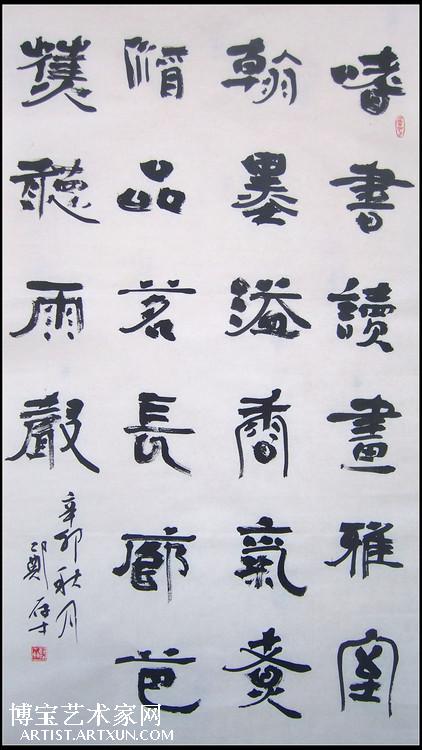 嗜書讀畫雅室
翰墨溢香氣煮
酒品茗長廊芭
蕉聽雨聲
辛卯秋月
鄭
博宝艺术家网
ARTIST.ARTXUN.COM